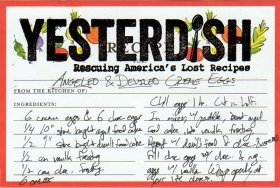 YESTERDISH
REC
Rescuing America's Lost Recipes
ANGELED & DEVILED CREME EGGS
FROM THE KITCHEN OF:
INGREDIENTS:
6 creme eggs & 6 choc eggs
1/4 10" store bought angel food cake
1/2 9" store bought devil's food cake
1/2 can vanilla frosting
1/2 can choc. frosting
Chill eggs 1 hr. Cut in half.
In mixer w/ paddle, beat angel
food cake into vanilla frosting
Repeat w/ devil's food & choc
Fill choc eggs w/ choc &
eggs w/ vanilla
your life choices.